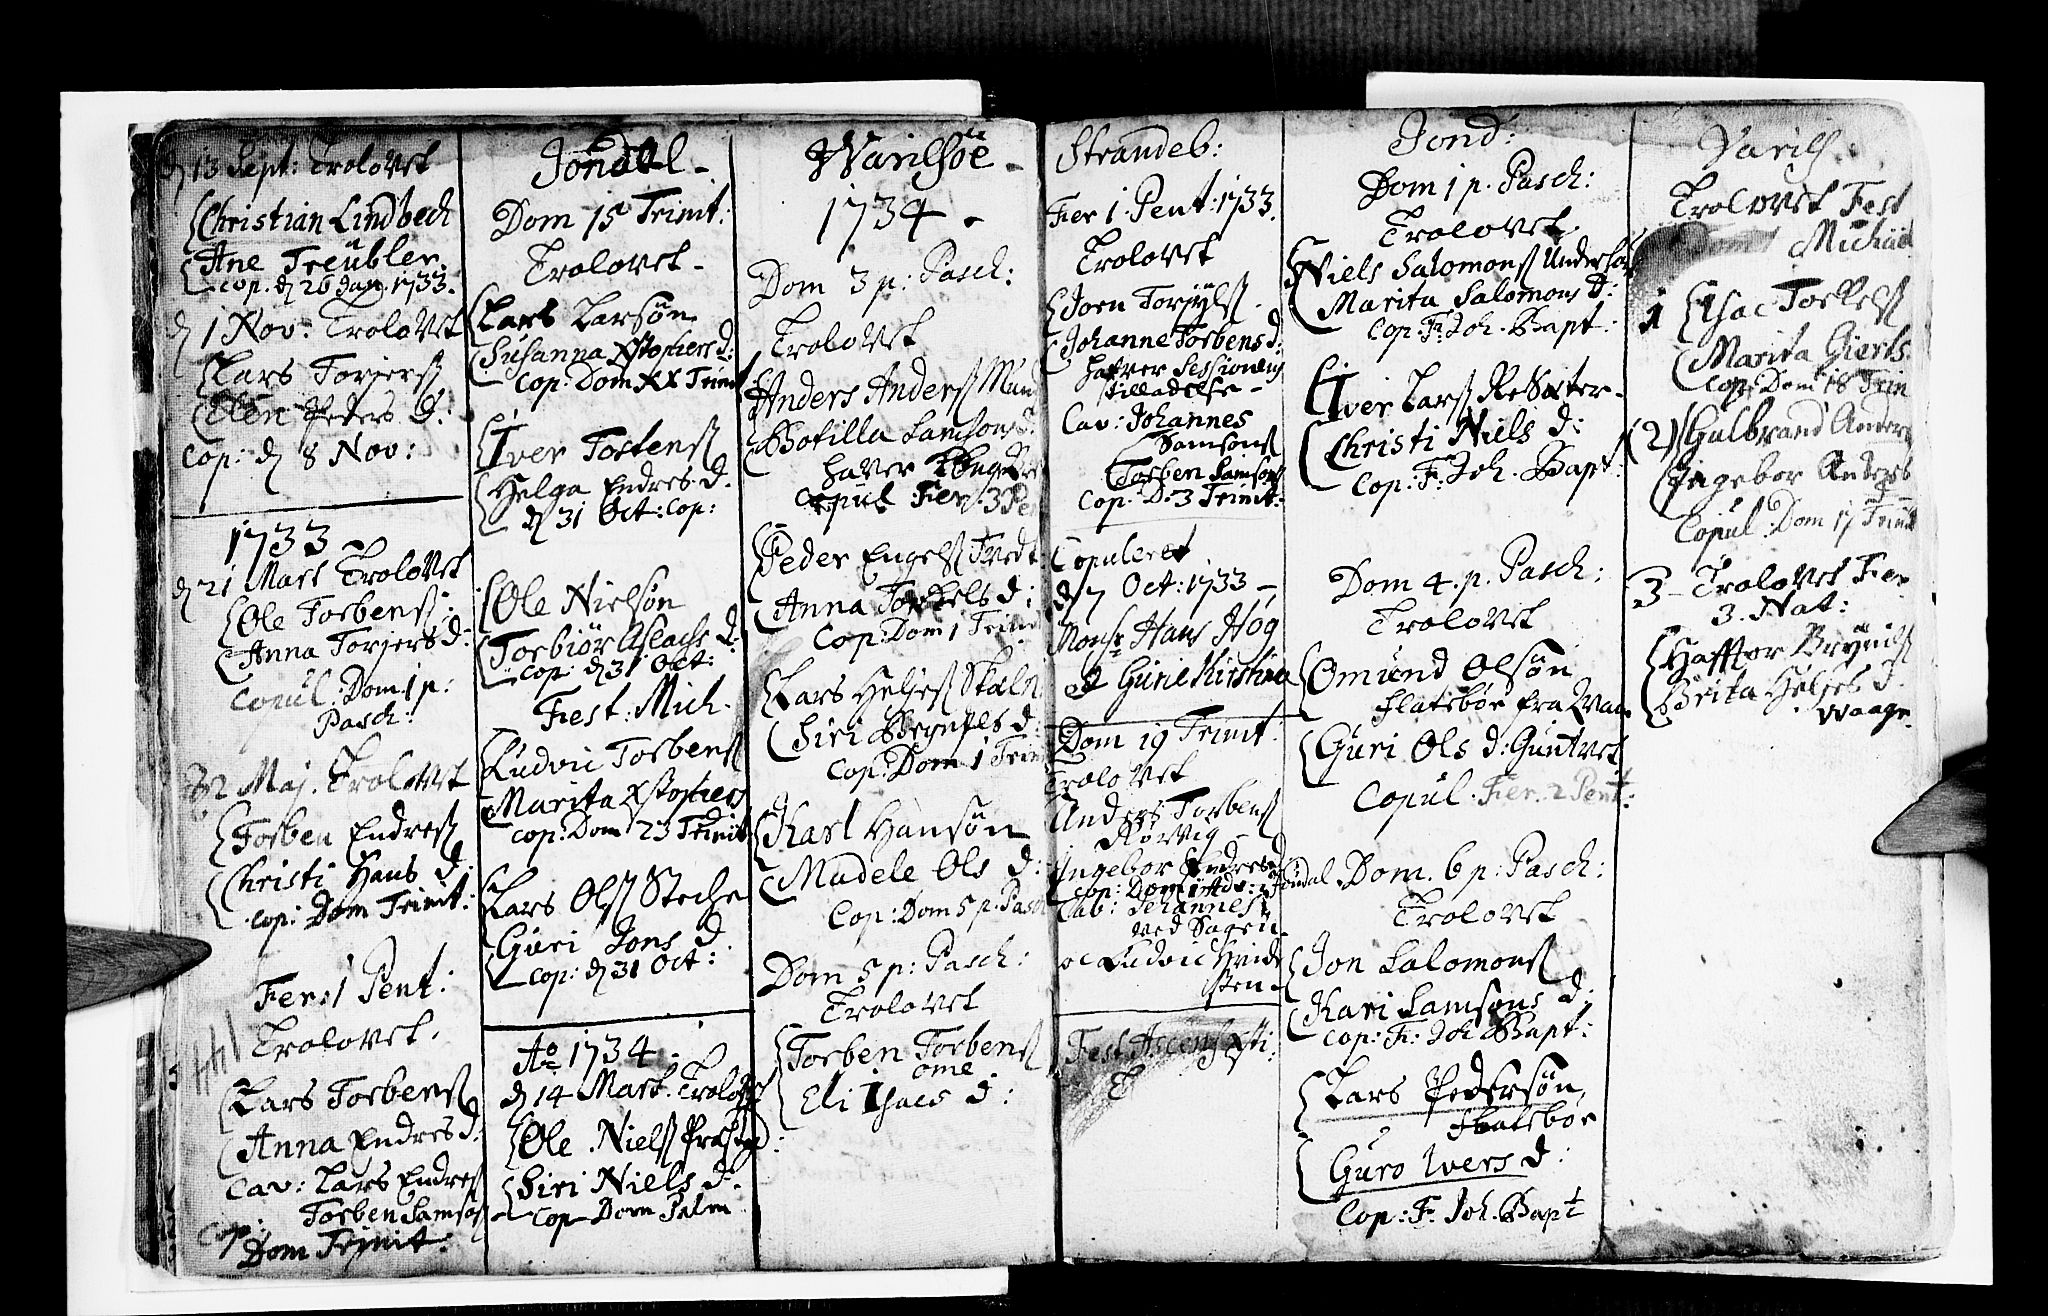 d 13 Sept: Trolovet
Christian Lindbech
Ane Treubler.
cop. d 26 Jan. 1733.
d 1 Nov: Trolovet
Lars Torjers
Elen Peders D:
Cop: d 8 Nov:
1733
d 21 Mart Trolovet
Ole Torbens
Anna Torjers d:
Copul: Dom 1 p:
Pasch:
Maj. Trolovet
Torben Endres
Christi Hans d:
cop: Dom Trinit:
Fer: 1 Pent:
Trolovet.
Lars Torbens
Anna Endres d:
Cav: Lars Endres
Torben Samsos
Cop:
Dom Trinit:
Jondal -
Dom 15 Trinit:
Trolovet -
Lars Larsøn
Susanna Xstophers d:
Cop: Dom XX Trinit
Iver Tostens
Helga Endres d.
d 31 Oct: cop:
Ole Nielsøn
Torbiør Aslachs d:
Cop: d 31 Oct:
Fest: Mich.
Ludvic Torbens
Marita Xstophers
d
cop: Dom 23 Trinit
Lars Ols Steche
Guri Jons d.
Cop: d 31 Oct:
Ao 1734.
d 14 Mart. Trolovet
Ole Niels
Siri Niels d.
Cop Dom Palm
Warilsøe -
1734 -
Dom 3 p: Pasch:
Trolovet
Anders Anders Mund
Botilla Samsons d:
haver
Copul Fer 3 Pen
Peder Engels Tvedt
Anna Torkels d:
Cop: Dom 1 Trinit
Lars Heljes
Siri d:
Cop: Dom 1 Trin
Karl Hansøn
Madele Ols d:
Cop: Dom 5 p. Pasch
Dom 5 p: Pasch:
Trolovet
Torben Torbens
ome
Eli Isacs d:
Strandeb:
Fer 1 Pent: 1733.
Trolovet
Joen Torjyls
Johanne Torbens d:
hafver Sessionens
tilladelse -
Cav: Johannes
Samsons
Torben Samsons
Cop: D: 3 Trinit:
Copuleret
d 7 Oct: 1733 -
Monsr Hans Høg
& Gurie Kirstina
Dom 19 Trinit.
Trolovet
Anders Torbens
Rørvig
Ingebor Endres d
Cop: Jondal
Cav: Johannes
ved Sagen
oc Ludvic Hvide
sten -
Fest Ascens Xsti:
T
Jond:
Dom 1 p. Pasch:
Trolovet
Niels Salomons
Marita Salomons D:
Cop: F. Joh. Bapt:
Iver Lars
Christi Niels d:
Cop: F: Joh. Bapt:
Dom 4. p. Pasch:
Trolovet
Omund Olsøn
Flatebøe fra
Guri Ols d: Guntvet
Copul: Fer. 2 Pent:
Dom. 6 p: Pasch:
Trolovet
Jon Salomons
Kari Samsons d:
Cop: F: Joh Bapt:
Lars Pedersøn
Flatebøe
Guro Ivers d:
Cop: F. Joh. Bapt
Varils.
Trolovet Fest
Michael
1 Isac Torkels
Marita Gierts
Cop: Dom 18 Trin
(2) Gulbrand Anders
Ingebor Anders
d
Copul: Dom 17 Trinit
3 - Trolovet Fer
3. Nat:
Hafftor Brynils
Brita Heljes d
Waage